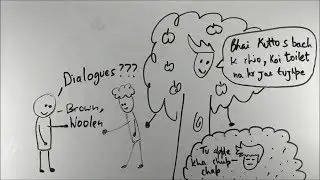 Dialogues???
Brown,
Woolen
Bhai Kutto s bach
k rhio, Koi toilet
na kr jae tujhpe
Tu apple
kha chup-
chap